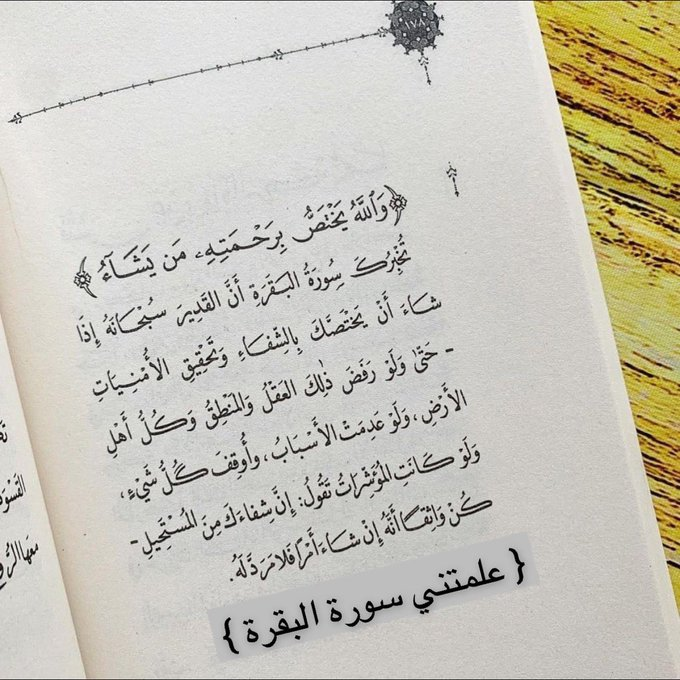 ١٧٨
﴿وَاللَّهُ يَخْتَصُّ بِرَحْمَتِهِ مَن يَشَاءُ﴾
تُخْبِرُكَ سُورَةُ البَقَرَةِ أَنَّ القَدِيرَ سُبْحَانَهُ إِذَا
شَاءَ أَنْ يَخْتَصَّكَ بِالشِّفَاءِ وَتَحْقِيقِ الأُمْنِيَاتِ
- حَتَّى وَلَوْ رَفَضَ ذٰلِكَ العَقْلُ وَالمَنْطِقُ وَكُلُّ أَهْلِ
الأَرْضِ، وَلَوْ عَدِمَتْ الأَسْبَابُ، وَأُوقِفَ كُلُّ شَيْءٍ،
وَلَوْ كَانَتِ المُؤَشِّرَاتُ تَقُولُ: إِنَّ شِفَاءَكَ مِنَ المُسْتَحِيلِ -
كُنْ وَاثِقًا أَنَّهُ إِنْ شَاءَ أَمْرًا فَلَا مَرَدَّ لَهُ.
{ علمتني سورة البقرة }